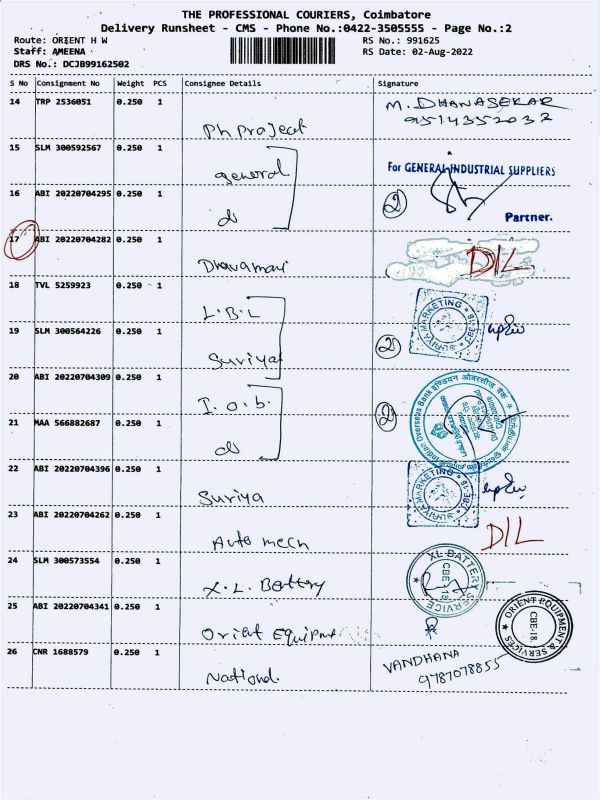 THE PROFESSIONAL COURIERS, Coimbatore
Delivery Runsheet - CMS - Phone No.:0422-3505555 - Page No.:2
Route: ORIENT H W RS No.: 991625
Staff: AMEENA RS Date: 02-Aug-2022
DRS No.: DCJB99162502
S No Consignment No Weight PCS Consignee Details Signature
14 TRP 2536051 0.250 1 Ph Project M. DHANASEKAR
9514352032
15 SLM 300592567 0.250 1 general For GENERAL INDUSTRIAL SUPPLIERS
16 ABI 20220704295 0.250 1 do 2 Partner.
17 ABI 20220704282 0.250 1 Dhavamani D/L
18 TVL 5259923 0.250 1 L.B.L SURIYA MARKETING CBE-18
19 SLM 300564226 0.250 1 Suriya 2
20 ABI 20220704309 0.250 1 I.o.b. Indian Overseas Bank इण्डियन ओवरसीज़ बैंक
21 MAA 566882687 0.250 1 do 2
22 ABI 20220704396 0.250 1 Suriya SURIYA MARKETING CBE-18
23 ABI 20220704262 0.250 1 Auto mech D/L
24 SLM 300573554 0.250 1 X.L. Battery XL BATTERY SERVICE CBE-18
25 ABI 20220704341 0.250 1 Orient Equipment ORIENT EQUIPMENT & SERVICES CBE-18
26 CNR 1688579 0.250 1 National. VANDHANA
9787078855